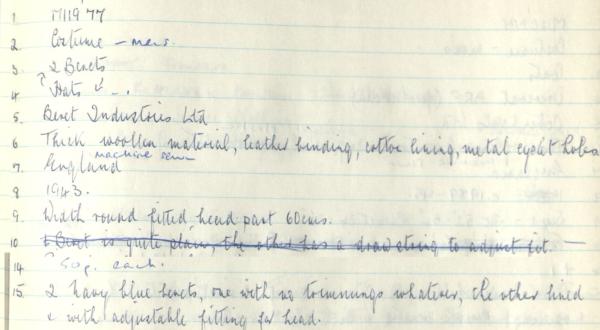 1 M119'77
2. Costume - mens.
3. 2 Berets
4. Hats
5. Beret Industries Ltd
6 Thick woollen material, leather binding, cotton lining, metal eyelet holes
machine sewn
7. England
8 1943.
9. Width round fitted head part 60cms.
10 1 Beret is quite plain, the other has a drawstring to adjust fit.
14 50p. each.
15. 2 navy blue berets, one with no trimmings whatever, the other lined
& with adjustable fitting for head.